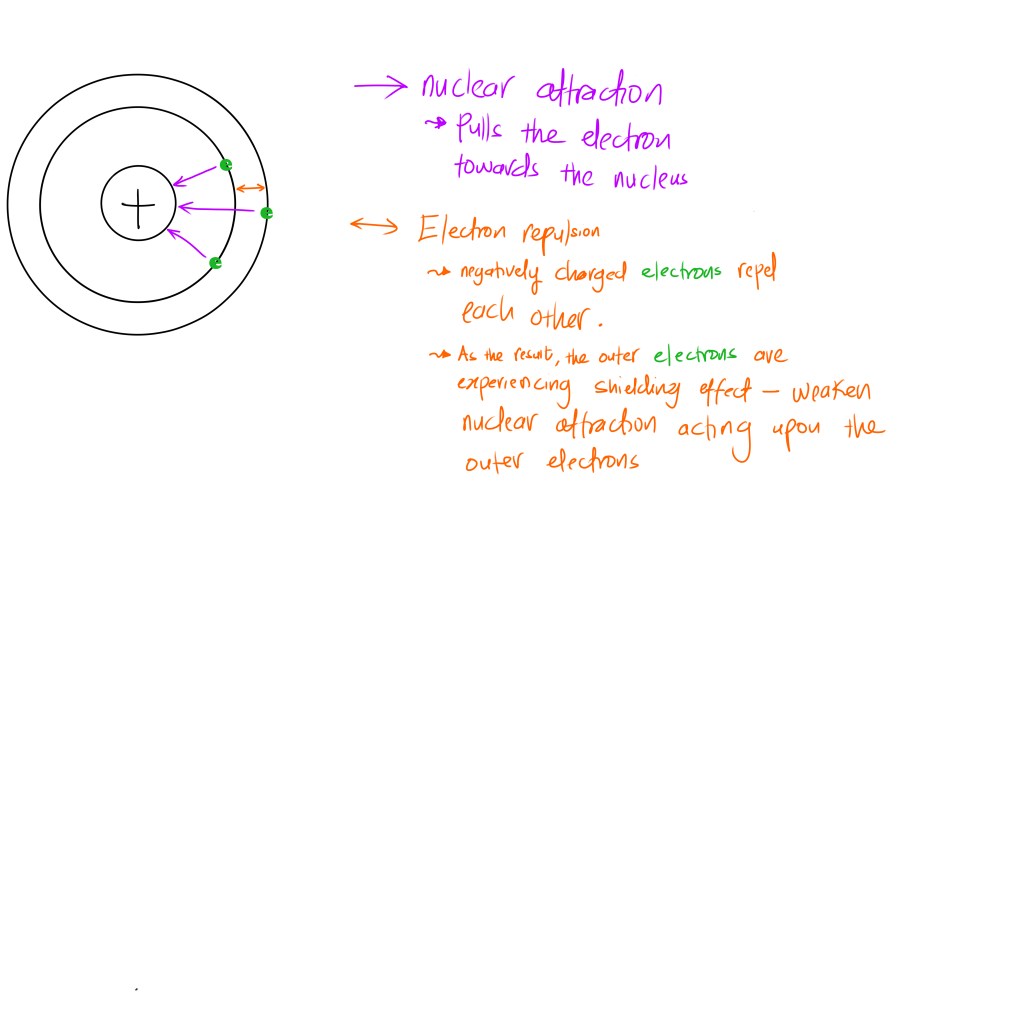 e
e
e
+
→ nuclear attraction
↝ Pulls the electron
towards the nucleus
↔ Electron repulsion
↝ negatively charged electrons repel
each other.
↝ As the result, the outer electrons are
experiencing shielding effect – weaken
nuclear attraction acting upon the
outer electrons